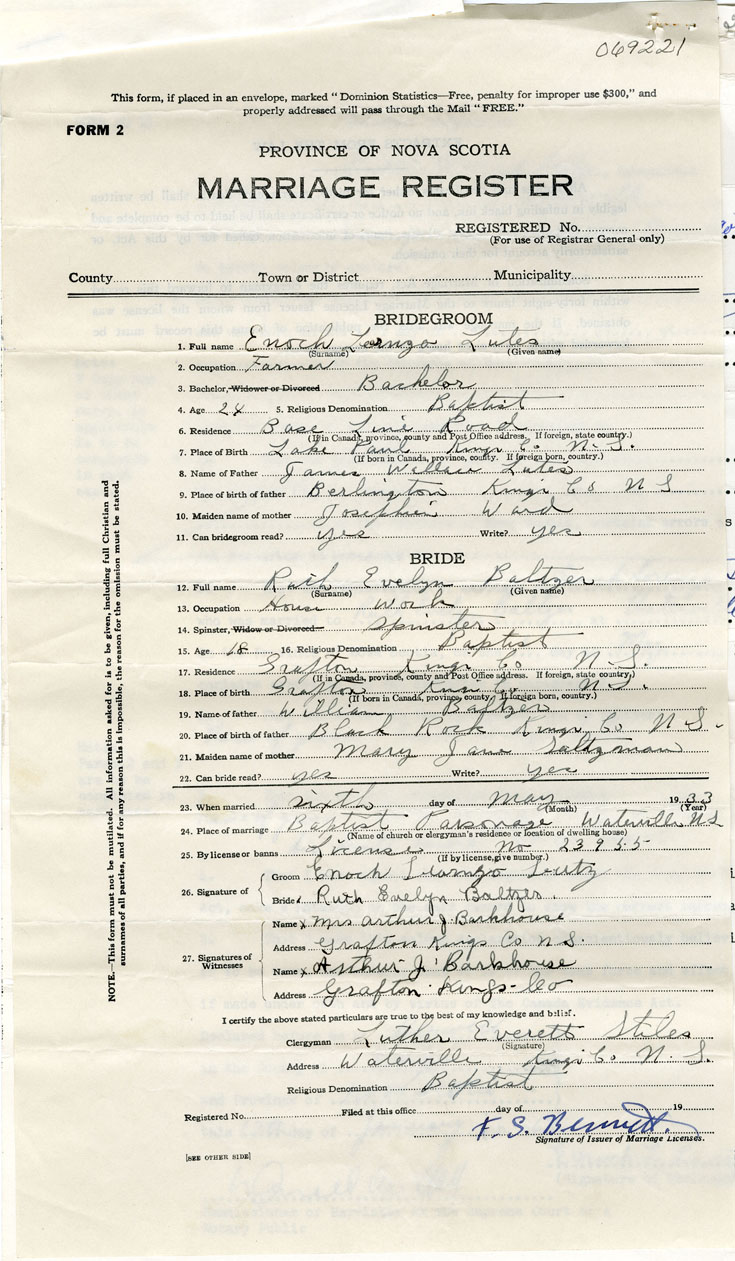 069221
This form, if placed in an envelope, marked "Dominion Statistics—Free, penalty for improper use $300," and
properly addressed will pass through the Mail "FREE."
FORM 2
PROVINCE OF NOVA SCOTIA
MARRIAGE REGISTER
REGISTERED No.
(For use of Registrar General only)
County Town or District Municipality
BRIDEGROOM
1. Full name Enoch Lornzo Lutes
(Surname) (Given name)
2. Occupation Farmer
3. Bachelor, Widower or Divorced Bachelor
4. Age 24 5. Religious Denomination Baptist
6. Residence Base Line Road
(If in Canada, province, county and Post Office address. If foreign, state country.)
7. Place of Birth Lake Paul Kings Co N.S.
(If born in Canada, province, county. If foreign born, country.)
8. Name of Father James Wallace Lutes
9. Place of birth of father Berlington Kings Co N S
10. Maiden name of mother Josephin Ward
11. Can bridegroom read? yes Write? yes
BRIDE
12. Full name Ruth Evelyn Baltzer
(Surname) (Given name)
13. Occupation House Work
14. Spinster, Widow or Divorced Spinster
15. Age 18 16. Religious Denomination Baptist
17. Residence Grafton Kings Co N.S.
(If in Canada, province, county and Post Office address. If foreign, state country.)
18. Place of birth Grafton Kings Co N.S.
(If born in Canada, province, county. If foreign born, country.)
19. Name of father William Baltzer
20. Place of birth of father Black Rock Kings Co N S.
21. Maiden name of mother Mary Jane Saltzman
22. Can bride read? yes Write? yes
23. When married sixth day of May 1933
(Month) (Year)
24. Place of marriage Baptist Parsonage Waterville NS
(Name of church or clergyman's residence or location of dwelling house)
25. By license or banns License No 23955
(If by license, give number.)
Groom Enoch Lornzo Lutz
26. Signature of
Bride Ruth Evelyn Baltzer.
Name x Mrs Arthur J. Barkhouse
Address Grafton Kings Co N.S.
27. Signatures of
Witnesses
Name x Arthur J. Barkhouse
Address Grafton Kings-Co
I certify the above stated particulars are true to the best of my knowledge and belief.
Clergyman Luther Everett Stiles
(Signature)
Address Waterville Kings Co. N.S.
Religious Denomination Baptist
Registered No. Filed at this office day of 19
F. S. Bennett.
Signature of Issuer of Marriage Licenses.
[SEE OTHER SIDE]
NOTE.—This form must not be mutilated. All information asked for is to be given, including full Christian and
surnames of all parties, and if for any reason this is impossible, the reason for the omission must be stated.